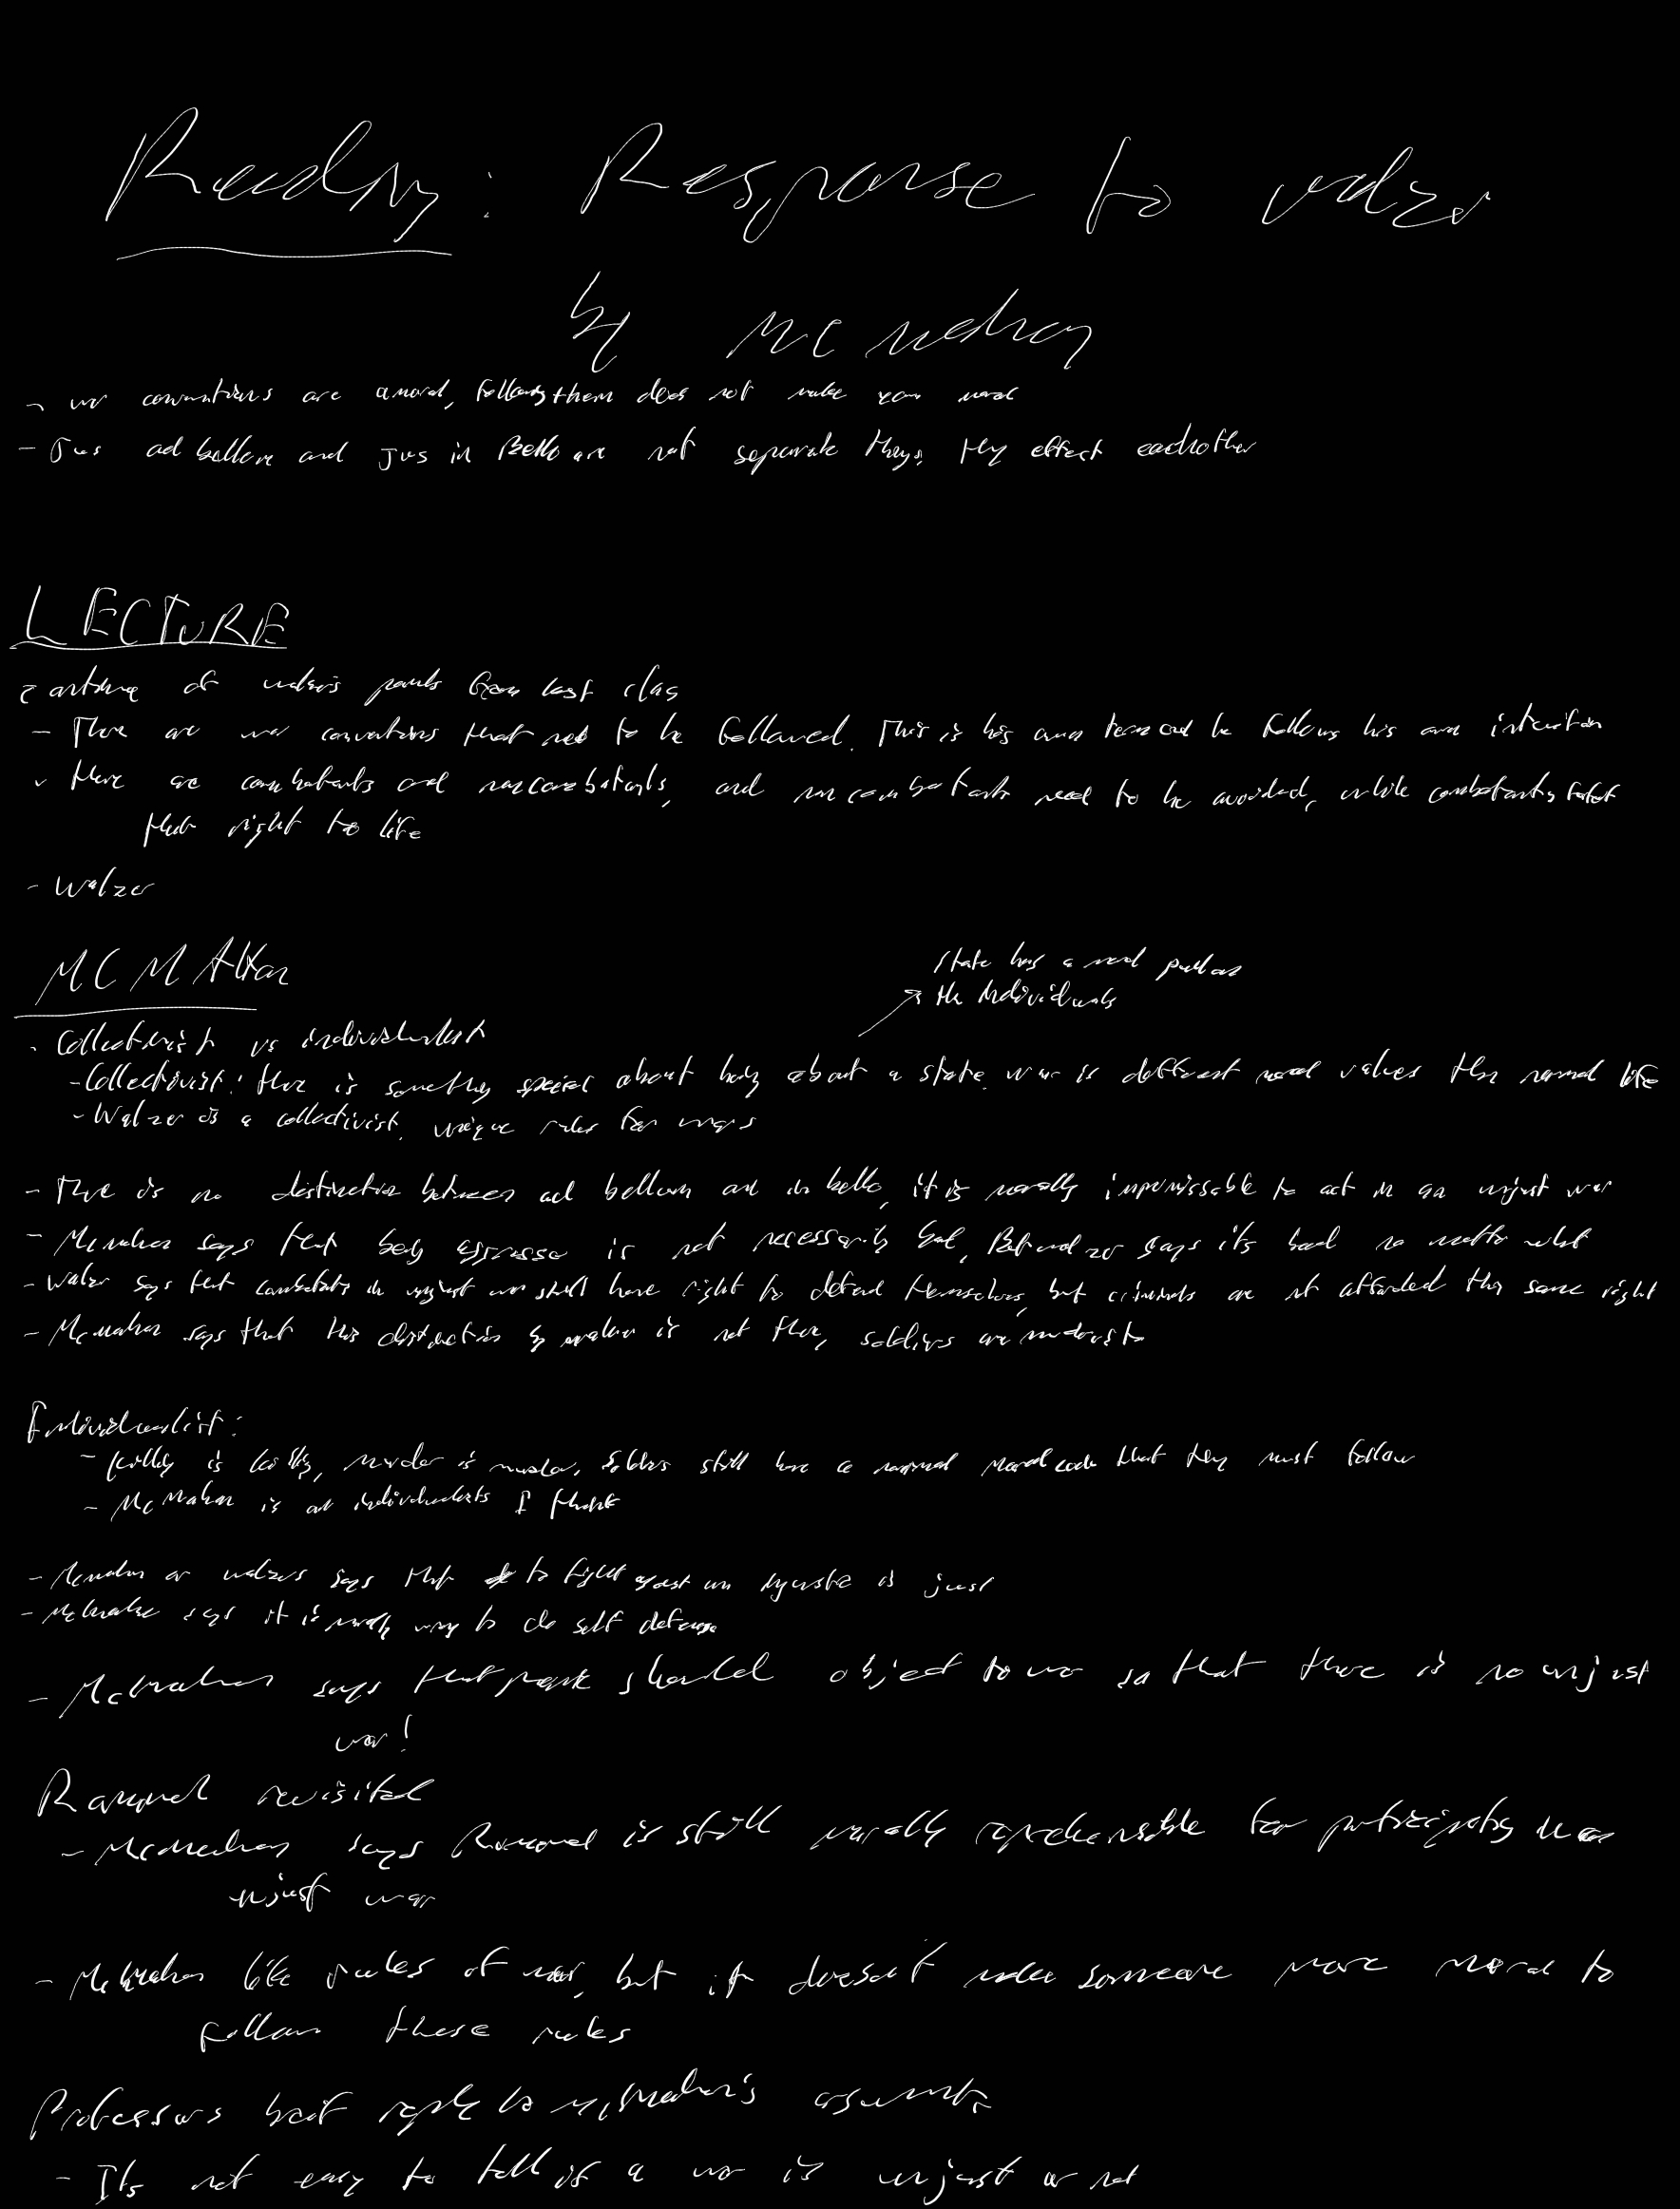 Reading: Response to Walzer
by McMahan
- war conventions are amoral, following them does not make you moral
- Jus ad bellum and Jus in Bello are not separate things, they effect eachother
LECTURE
of walzer's points from last class
- There are war conventions that need to be followed. This is his own term and he follows his own intuition
- there are combatants and noncombatants, and noncombatants need to be avoided, while combatants forfeit
their right to life
- Walzer
MCMAHan
state has a moral pull on
the individuals
- Collectivist vs individualist
- Collectivist: there is something special about being about a state. war is different moral values than normal life
- Walzer is a collectivist. unique rules for wars
- There is no distinction between ad bellum and in bello, it is morally impermissable to act in an unjust war
- McMahan says that being aggressor is not necessarily bad, But walzer says its bad no matter what
- Walzer says that combatants in unjust war still have right to defend themselves, but criminals are not afforded this same right
- McMahan says that this distinction by walzer is not there, soldiers are
Individualist:
- killing is killing, murder is murder, soldiers still have a normal moral code that they must follow
- McMahan is an individualists I think
- McMahan or walzers says that to fight against an is just
- McMahan says it is morally wrong to do self defense
- McMahan says that people should object to war so that there is no unjust
war!
Rommel revisited
- McMahan says Rommel is still morally reprehensible for participating in an
unjust war
- McMahan like rules of war, but it doesn't make someone more moral to
follow these rules
Professors best reply to McMahan's arguments
- Its not easy to tell if a war is unjust or not